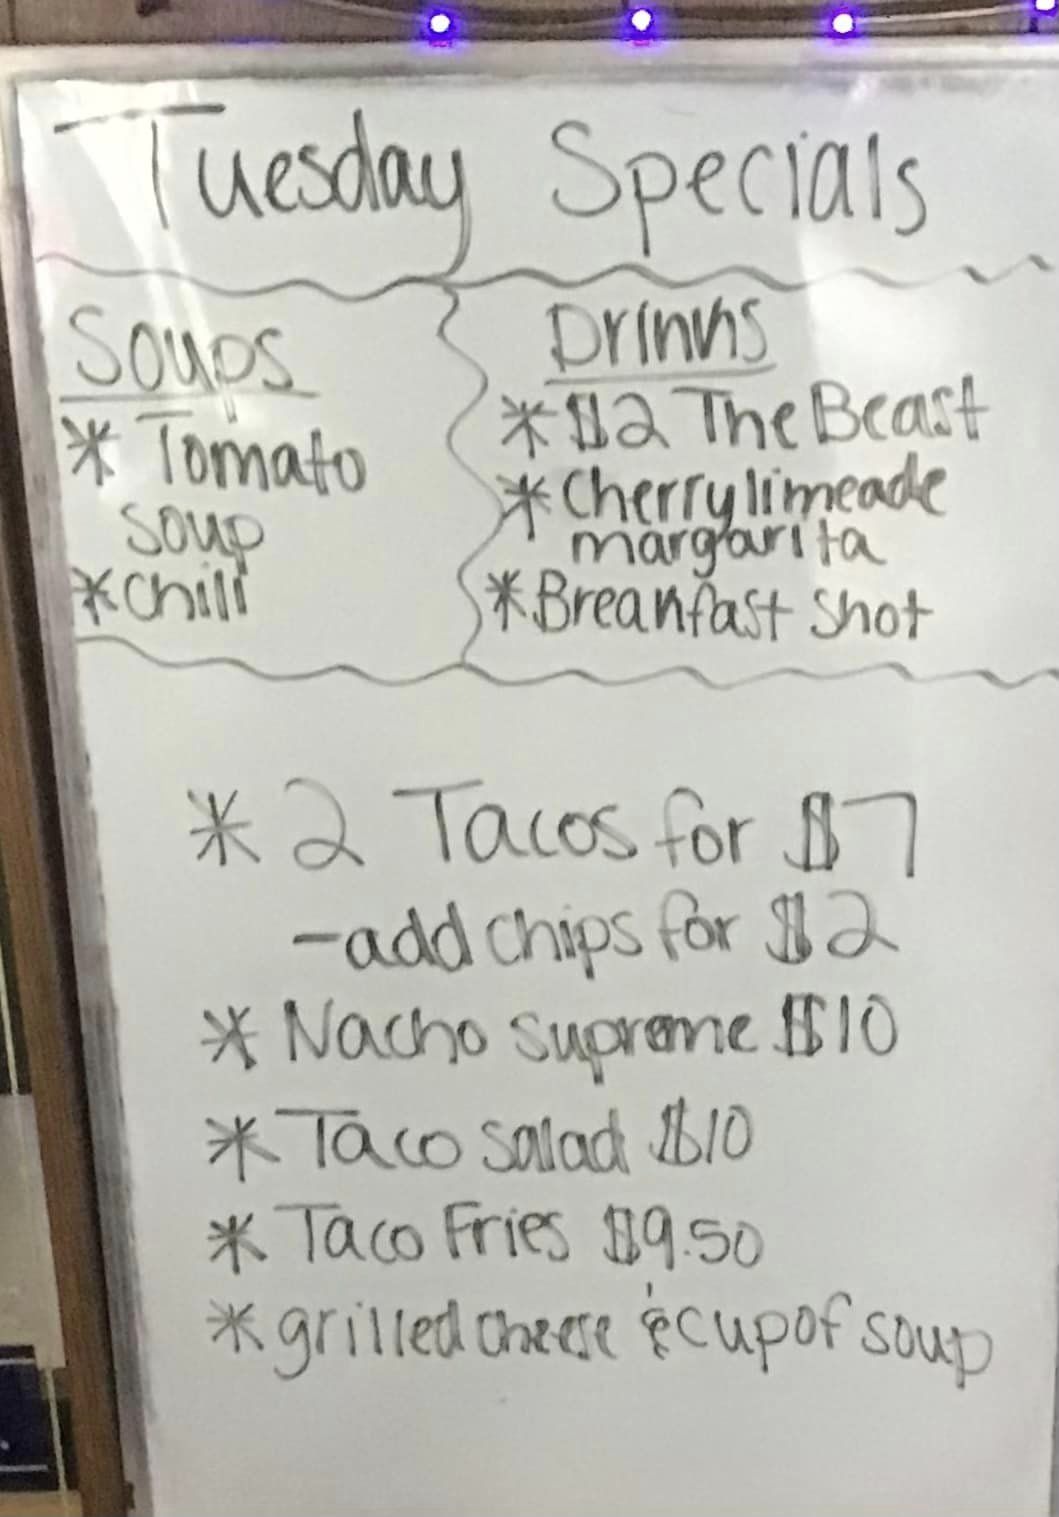 Tuesday Specials
Soups
* Tomato
soup
* Chili
Drinks
* $2 The Beast
* Cherry limeade
margarita
* Breakfast shot
* 2 Tacos for $7
- add chips for $2
* Nacho supreme $10
* Taco salad $10
* Taco Fries $9.50
* grilled cheese & cup of soup